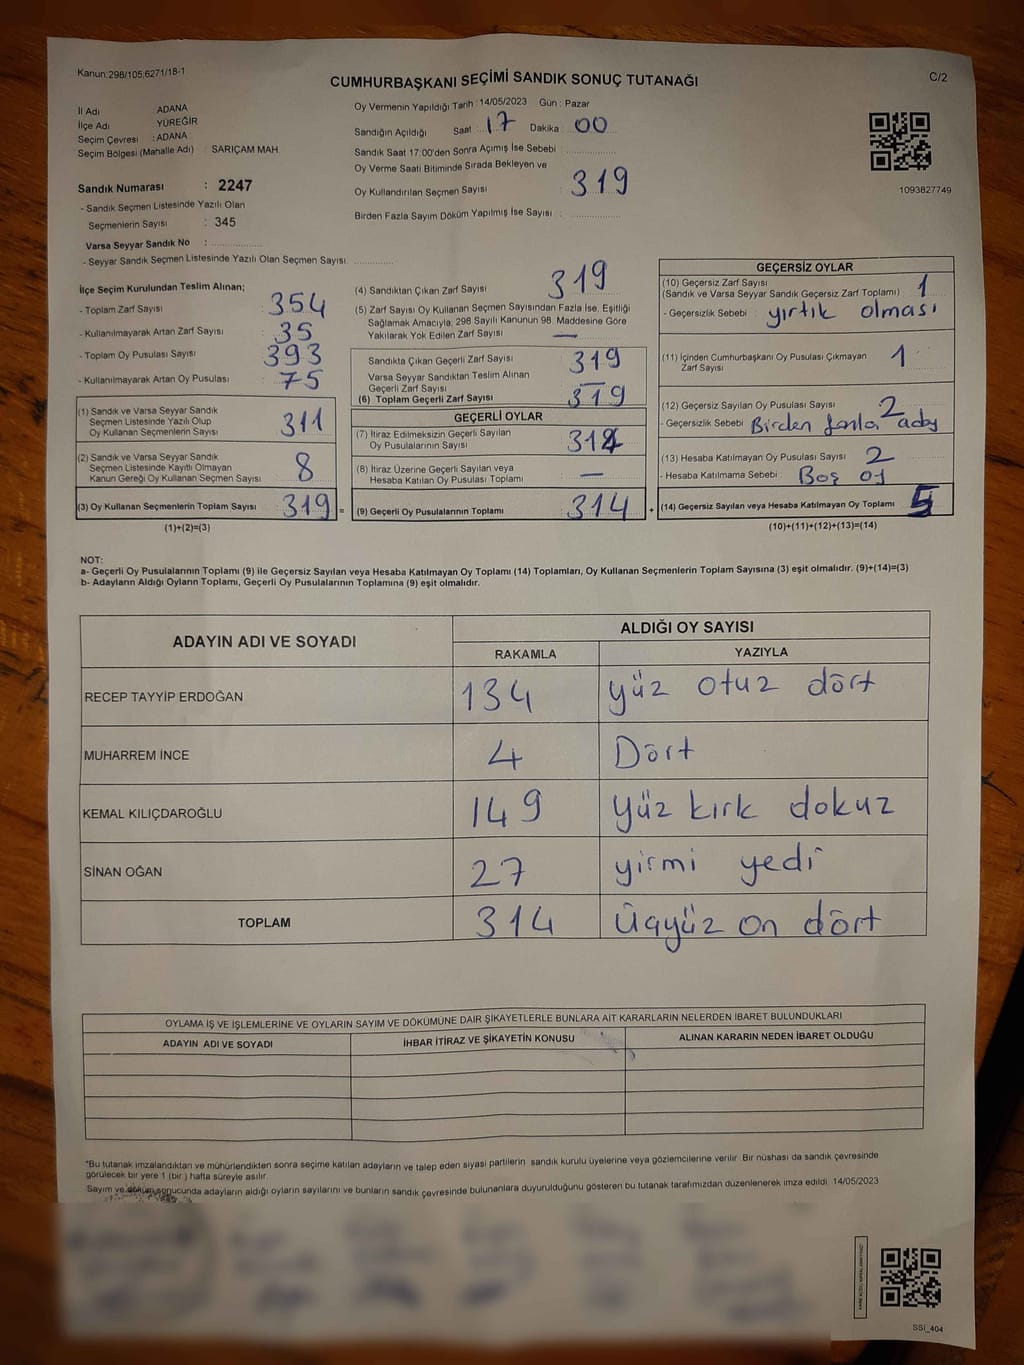 Kanun:298/105;6271/18-1
CUMHURBAŞKANI SEÇİMİ SANDIK SONUÇ TUTANAĞI
C/2
İl Adı : ADANA
İlçe Adı : YÜREĞİR
Seçim Çevresi : ADANA
Seçim Bölgesi (Mahalle Adı) : SARIÇAM MAH.
Sandık Numarası : 2247
- Sandık Seçmen Listesinde Yazılı Olan
Seçmenlerin Sayısı : 345
Varsa Seyyar Sandık No :
- Seyyar Sandık Seçmen Listesinde Yazılı Olan Seçmen Sayısı:
Oy Vermenin Yapıldığı Tarih : 14/05/2023 Gün : Pazar
Sandığın Açıldığı Saat : 17 Dakika : 00
Sandık Saat 17:00'den Sonra Açımış İse Sebebi :
Oy Verme Saati Bitiminde Sırada Bekleyen ve
Oy Kullandırılan Seçmen Sayısı : 319
Birden Fazla Sayım Döküm Yapılmış İse Sayısı :
1093827749
İlçe Seçim Kurulundan Teslim Alınan;
- Toplam Zarf Sayısı : 354
- Kullanılmayarak Artan Zarf Sayısı : 35
- Toplam Oy Pusulası Sayısı : 393
- Kullanılmayarak Artan Oy Pusulası : 75
(1) Sandık ve Varsa Seyyar Sandık
Seçmen Listesinde Yazılı Olup
Oy Kullanan Seçmenlerin Sayısı : 311
(2) Sandık ve Varsa Seyyar Sandık
Seçmen Listesinde Kayıtlı Olmayan
Kanun Gereği Oy Kullanan Seçmen Sayısı : 8
(3) Oy Kullanan Seçmenlerin Toplam Sayısı : 319 =
(1)+(2)=(3)
(4) Sandıktan Çıkan Zarf Sayısı : 319
(5) Zarf Sayısı Oy Kullanan Seçmen Sayısından Fazla İse, Eşitliği
Sağlamak Amacıyla; 298 Sayılı Kanunun 98. Maddesine Göre
Yakılarak Yok Edilen Zarf Sayısı : —
Sandıkta Çıkan Geçerli Zarf Sayısı : 319
Varsa Seyyar Sandıktan Teslim Alınan
Geçerli Zarf Sayısı : —
(6) Toplam Geçerli Zarf Sayısı : 319
GEÇERLİ OYLAR
(7) İtiraz Edilmeksizin Geçerli Sayılan
Oy Pusulalarının Sayısı : 314
(8) İtiraz Üzerine Geçerli Sayılan veya
Hesaba Katılan Oy Pusulası Toplamı : —
(9) Geçerli Oy Pusulalarının Toplamı : 314 +
GEÇERSİZ OYLAR
(10) Geçersiz Zarf Sayısı
(Sandık ve Varsa Seyyar Sandık Geçersiz Zarf Toplamı) : 1
- Geçersizlik Sebebi : yırtık olması
(11) İçinden Cumhurbaşkanı Oy Pusulası Çıkmayan
Zarf Sayısı : 1
(12) Geçersiz Sayılan Oy Pusulası Sayısı : 2
- Geçersizlik Sebebi : Birden fazla
(13) Hesaba Katılmayan Oy Pusulası Sayısı : 2
- Hesaba Katılmama Sebebi : Boş oy
(14) Geçersiz Sayılan veya Hesaba Katılmayan Oy Toplamı : 5
(10)+(11)+(12)+(13)=(14)
NOT:
a- Geçerli Oy Pusulalarının Toplamı (9) ile Geçersiz Sayılan veya Hesaba Katılmayan Oy Toplamı (14) Toplamları, Oy Kullanan Seçmenlerin Toplam Sayısına (3) eşit olmalıdır. (9)+(14)=(3)
b- Adayların Aldığı Oyların Toplamı, Geçerli Oy Pusulalarının Toplamına (9) eşit olmalıdır.
ADAYIN ADI VE SOYADI
ALDIĞI OY SAYISI
RAKAMLA YAZIYLA
RECEP TAYYİP ERDOĞAN 134 yüz otuz dört
MUHARREM İNCE 4 Dört
KEMAL KILIÇDAROĞLU 149 yüz kırk dokuz
SİNAN OĞAN 27 yirmi yedi
TOPLAM 314 Üçyüz on dört
OYLAMA İŞ VE İŞLEMLERİNE VE OYLARIN SAYIM VE DÖKÜMÜNE DAİR ŞİKAYETLERLE BUNLARA AİT KARARLARIN NELERDEN İBARET BULUNDUKLARI
ADAYIN ADI VE SOYADI İHBAR İTİRAZ VE ŞİKAYETİN KONUSU ALINAN KARARIN NEDEN İBARET OLDUĞU
"Bu tutanak imzalandıktan ve mühürlendikten sonra seçime katılan adayların ve talep eden siyasi partilerin sandık kurulu üyelerine veya gözlemcilerine verilir. Bir nüshası da sandık çevresinde
görülecek bir yere 1 (bir ) hafta süreyle asılır.
Sayım ve döküm sonucunda adayların aldığı oyların sayılarını ve bunların sandık çevresinde bulunanlara duyurulduğunu gösteren bu tutanak tarafımızdan düzenlenerek imza edildi. 14/05/2023
SSI_404